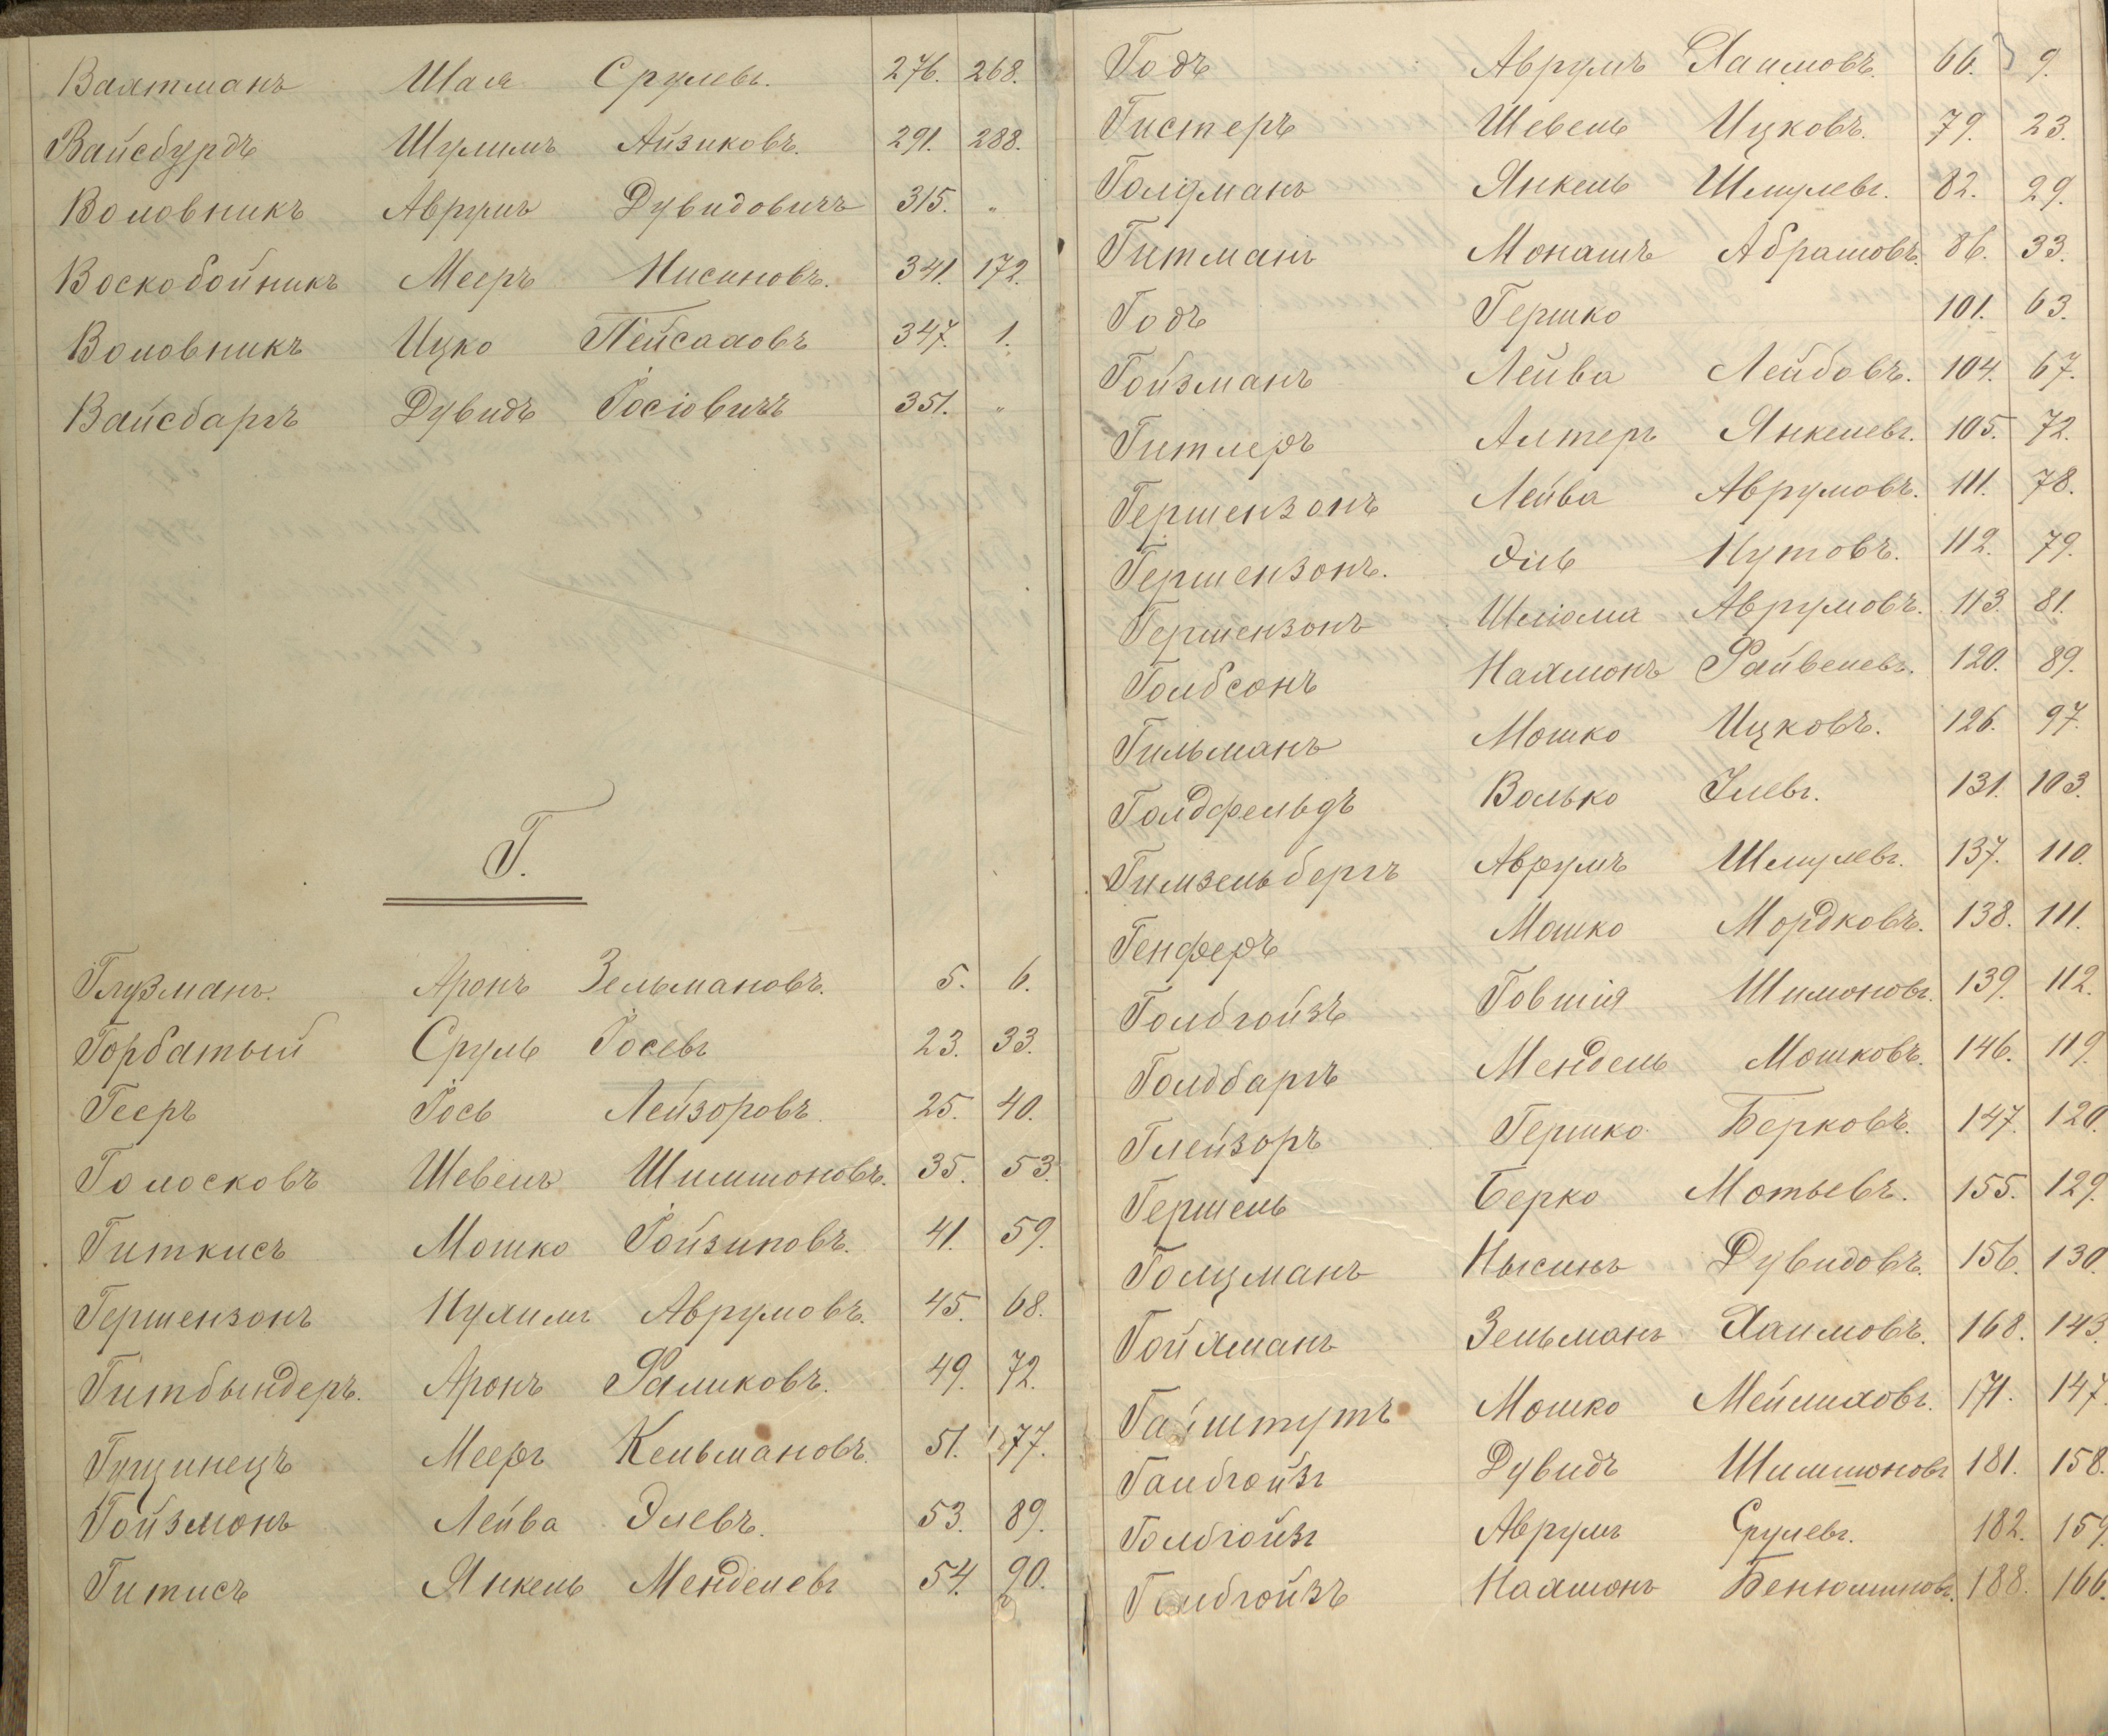 Вахтманъ Шая Срулевъ. 276. 268.
Вайсбурдъ Шулимъ Айзиковъ. 291. 288.
Воловникъ Аврумъ Дувидовичъ 315. "
Воскобойникъ Мееръ Нисиновъ. 341. 172.
Воловникъ Ицко Пейсаховъ 347. 1.
Вайсбаргъ Дувидъ Іосіовичъ 351. "
Г.
Глузманъ. Аронъ Зельмановъ. 5. 6.
Горбатый Сруль Іосевъ 23. 33.
Гееръ Іось Лейзоровъ. 25. 40.
Голосковъ Шевель Шимшоновъ. 35. 53.
Гиткисъ Мошко Гойзиковъ. 41. 59.
Гершензонъ Нухимъ Аврумовъ. 45. 68.
Гитбындеръ. Аронъ Фаликовъ. 49. 72.
Гущинецъ Мееръ Кельмановъ. 51. 77.
Гойзмонъ Лейба Элевъ. 53. 89.
Гитисъ Янкель Менделевъ 54. 90.
Годъ Аврумъ Хаимовъ. 66. 9.
Гистеръ Шевель Ицковъ. 79. 23.
Голдманъ Янкель Шмулевъ. 82. 29.
Гитманъ Монашъ Абрамовъ. 86. 33.
Годъ Гершко 101. 63.
Гойзманъ Лейба Лейбовъ. 104. 67.
Гитлеръ Алтеръ Янкелевъ. 105. 72.
Гершензонъ Лейба Аврумовъ. 111. 78.
Гершензонъ. Эль Нутовъ. 112. 79.
Гершензонъ Шліома Аврумовъ. 113. 81.
Голбсонъ Нахмонъ Файвелевъ. 120. 89.
Гильманъ Мошко Ицковъ. 126. 97.
Голдфельдъ Волько Улевъ. 131. 103.
Гимзельбергъ Аврумъ Шмулевъ. 137. 110.
Генферъ Мошко Мордковъ. 138. 111.
Голбгойзъ Говшія Шимоновъ. 139. 112.
Голдбаргъ Мендель Мошковъ. 146. 119.
Глейзоръ Гершко Берковъ. 147. 120.
Гершель Берко Мотьевъ. 155. 129.
Голцманъ Нысинъ Дувидовъ. 156. 130.
Гойхманъ Зельманъ Хаимовъ. 168. 143.
Гайштутъ Мошко Мейлиховъ. 171. 147.
Галбгойзъ Дувидъ Шимшоновъ 181. 158.
Голбгойзъ Аврумъ Срулевъ. 182. 159.
Голбгойзъ Нахмонъ Бенюминовъ. 188. 166.